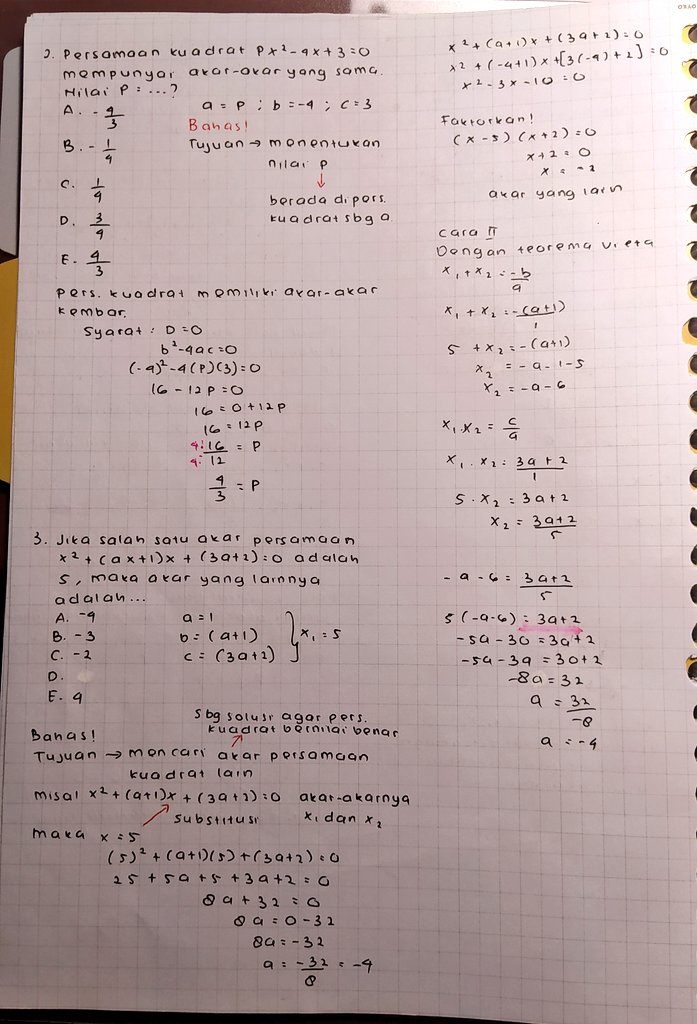 2. Persamaan kuadrat Px² - 4x + 3 = 0
mempunyai akar-akar yang sama.
Nilai P = ...?
a = P ; b = -4 ; c = 3
A. - 4/3
B. - 1/4
C. 1/4
D. 3/4
E. 4/3
Bahas!
Tujuan → menentukan
nilai P
↓
berada di pers.
kuadrat sbg a
Pers. kuadrat memiliki akar-akar
kembar.
Syarat : D = 0
b² - 4ac = 0
(-4)² - 4(P)(3) = 0
16 - 12P = 0
16 = 0 + 12P
16 = 12P
4: 16 / 4: 12 = P
4/3 = P
3. Jika salah satu akar persamaan
x² + (ax+1)x + (3a+2) = 0 adalah
5, maka akar yang lainnya
adalah...
A. -4
B. -3
C. -2
D.
E. 4
a = 1
b = (a+1)
c = (3a+2)
} x₁ = 5
sbg solusi agar pers.
kuadrat bernilai benar
Bahas!
Tujuan → mencari akar persamaan
kuadrat lain
misal x² + (a+1)x + (3a+2) = 0 akar-akarnya
substitusi x₁ dan x₂
maka x = 5
(5)² + (a+1)(5) + (3a+2) = 0
25 + 5a + 5 + 3a + 2 = 0
8a + 32 = 0
8a = 0 - 32
8a = -32
a = -32/8 = -4
x² + (a+1)x + (3a+2) = 0
x² + (-4+1)x + [3(-4)+2] = 0
x² - 3x - 10 = 0
Faktorkan!
(x-5)(x+2) = 0
x + 2 = 0
x = -2
akar yang lain
cara II
Dengan teorema vieta
x₁ + x₂ = -b/a
x₁ + x₂ = -(a+1)/1
5 + x₂ = -(a+1)
x₂ = -a - 1 - 5
x₂ = -a - 6
x₁ . x₂ = c/a
x₁ . x₂ = 3a+2/1
5 . x₂ = 3a+2
x₂ = 3a+2/5
-a - 6 = 3a+2/5
5(-a-6) = 3a+2
-5a - 30 = 3a + 2
-5a - 3a = 30 + 2
-8a = 32
a = 32/-8
a = -4